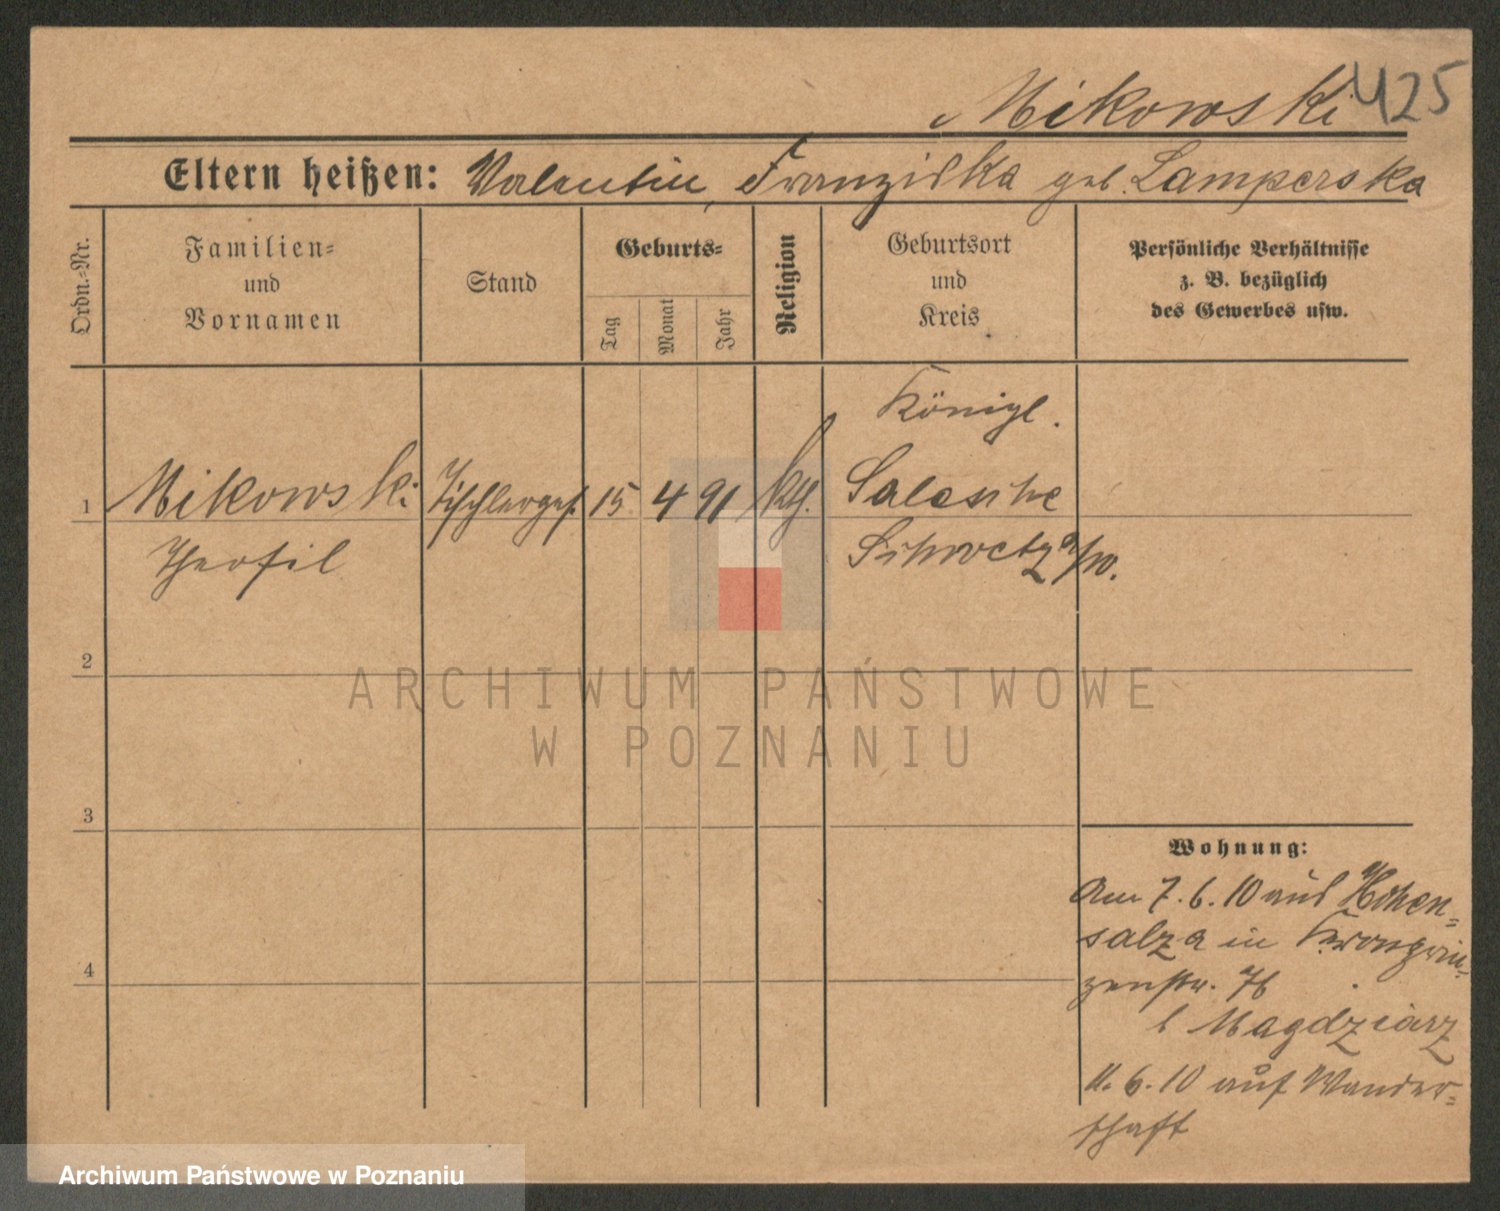 Mikowski 425
Eltern heißen: Valentin, Franziska geb. Lamperska
Ordn.=Nr.
Familien=
und
Vornamen
Stand
Geburts=
Tag
Monat
Jahr
Religion
Geburtsort
und
Kreis
Persönliche Verhältnisse
z. B. bezüglich
des Gewerbes usw.
Königl.
1 Mikowski Tischlerges. 15. 4 91 kth. Salesche
Theofil Schwetz a/w.
2
ARCHIWUM PAŃSTWOWE
W POZNANIU
3
Wohnung:
Am 7.6.10 aus Hohen=
salza in Kronprin=
zenstr. 76
b Magdziarz
11.6.10 auf Wander=
schaft
4
Archiwum Państwowe w Poznaniu